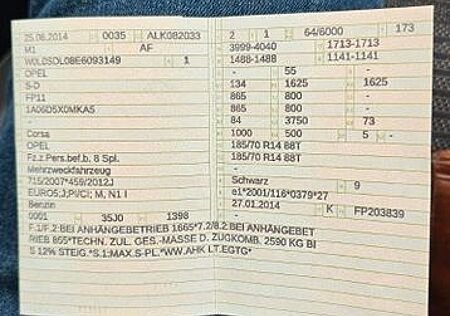 25.08.2014 0035 ALK082033
M1 AF
W0LDSDL08E6093149 1
OPEL
S-D
FP11
1A06D5X0MKA5
-
Corsa
OPEL
Fz.z.Pers.bef.b. 8 Spl.
Mehrzweckfahrzeug
715/2007*459/2012J
EURO5;J;PI/CI; M, N1 I
Benzin
0001 35J0 1398
2 1 64/6000 173
3999-4040 1713-1713
1488-1488 1141-1141
- 55 -
134 1625 1625
865 800 -
865 800 -
- 84 3750 73
1000 500 5 -
185/70 R14 88T
185/70 R14 88T
-
Schwarz 9
e1*2001/116*0379*27
27.01.2014 K FP203839
F.1/F.2:BEI ANHÄNGEBETRIEB 1665*7.2/8.2:BEI ANHÄNGEBET
RIEB 855*TECHN. ZUL. GES.-MASSE D. ZUGKOMB. 2590 KG BI
S 12% STEIG.*S.1:MAX.S-PL.*WW.AHK LT.EGTG*